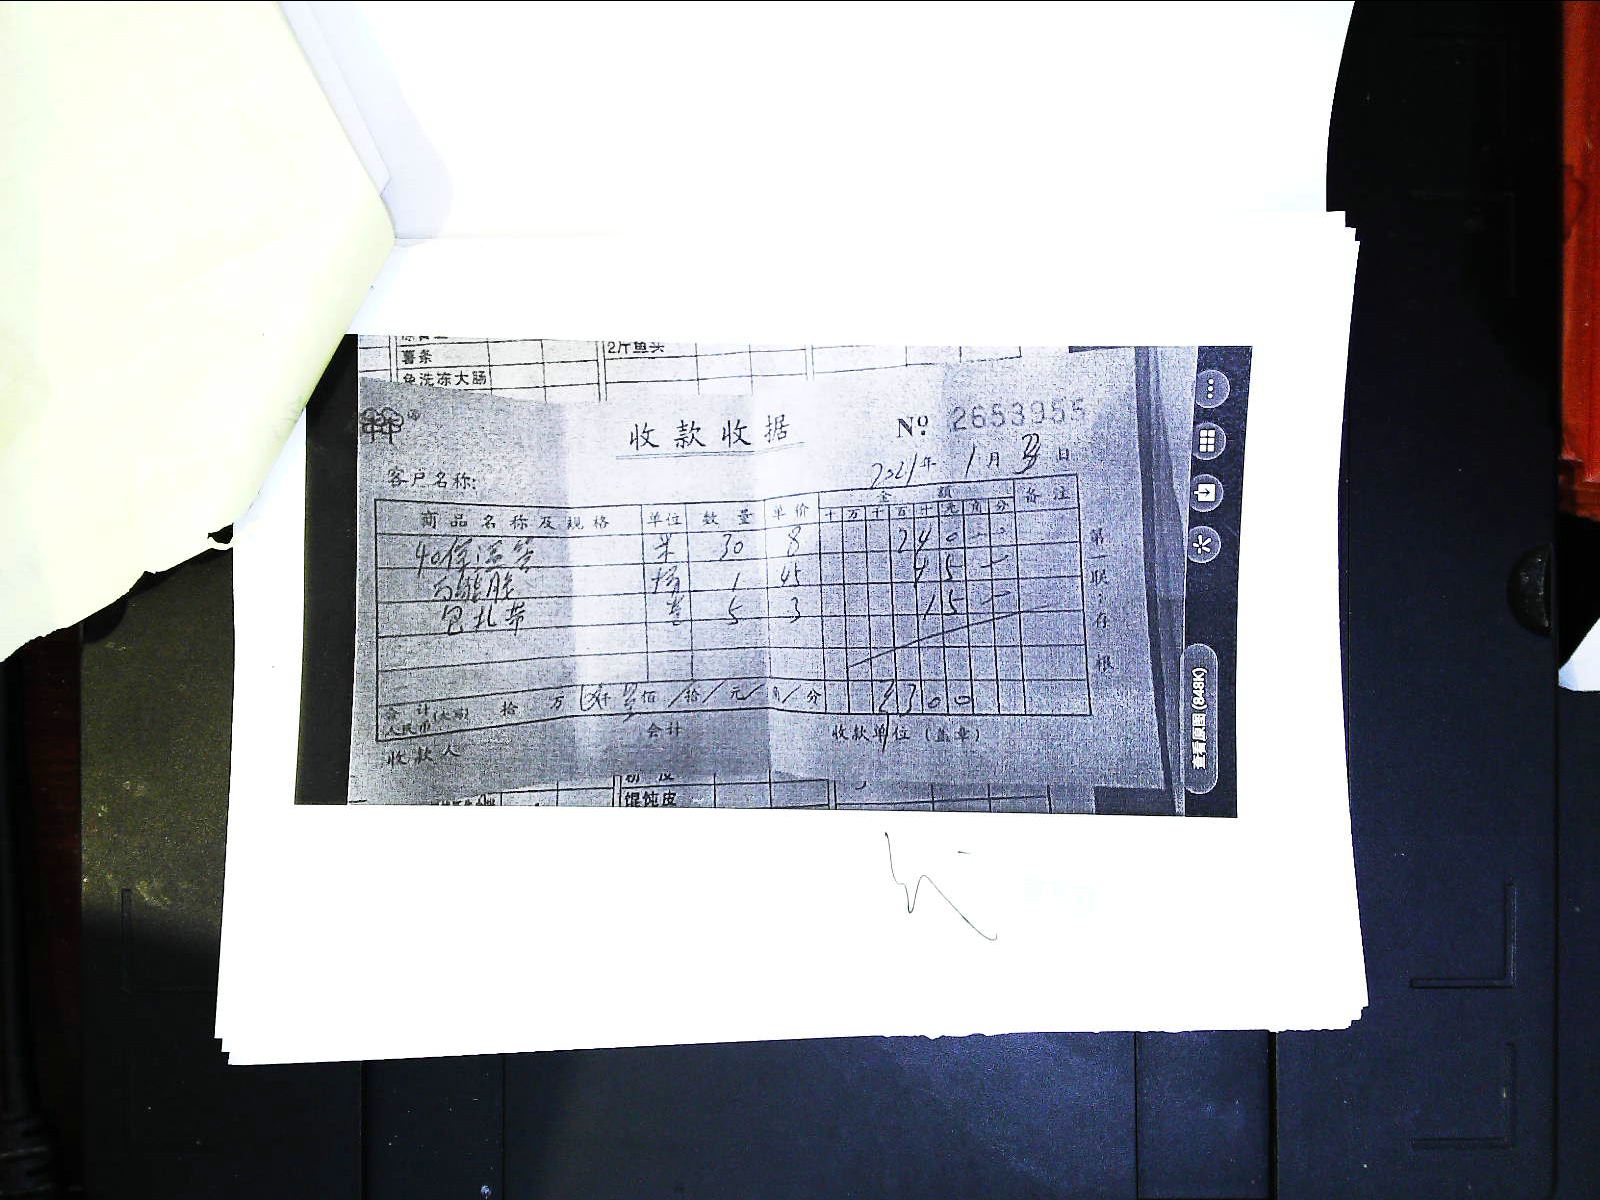 薯条
2斤鱼头
免洗冻大肠
收款收据
№ 2653955
2021年 1月 3日
客户名称:
商品名称及规格 单位 数量 单价 金额 备注
十 万 千 百 十 元 角 分
40保温管 米 30 8 240--
万能胶 1 45 45-
包扎带 卷 5 3 15-
合计人民币(大写) 拾 万 仟 叁佰 / 拾 / 元 / 角 / 分 300
收款人 会计 收款单位(盖章)
第一联:存根
馄饨皮
查看原图 (849K)